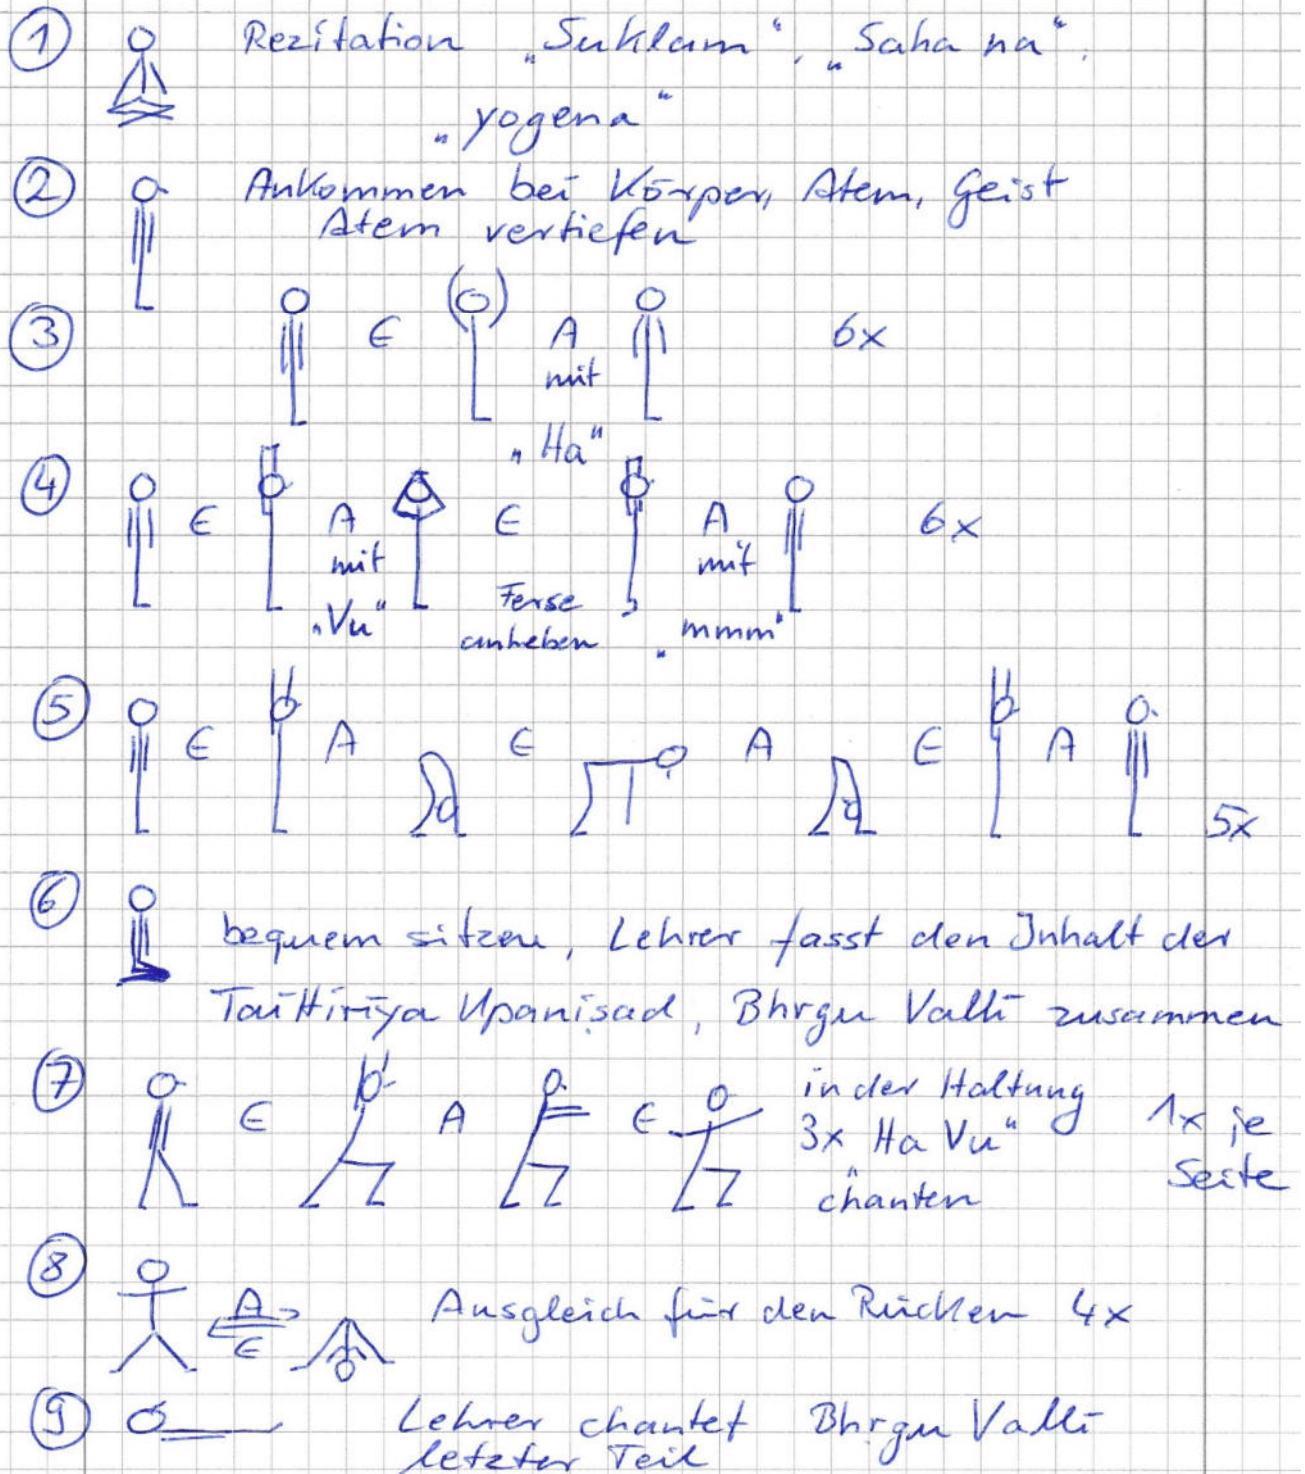 ① Rezitation „Suklam“, „Saha na“,
„yogena“
② Ankommen bei Körper, Atem, Geist
Atem vertiefen
③ E A 6x
mit
„Ha“
④ E A E A 6x
mit Ferse mit
„Vu“ anheben „mmm“
⑤ E A E A E A 5x
⑥ bequem sitzen, Lehrer fasst den Inhalt der
Taittirīya Upaniṣad, Bhrgu Vallī zusammen
⑦ E A E in der Haltung 1x je
3x „Ha Vu“ Seite
chanten
⑧ A Ausgleich für den Rücken 4x
E
⑨ Lehrer chantet Bhṛgu Vallī
letzter Teil